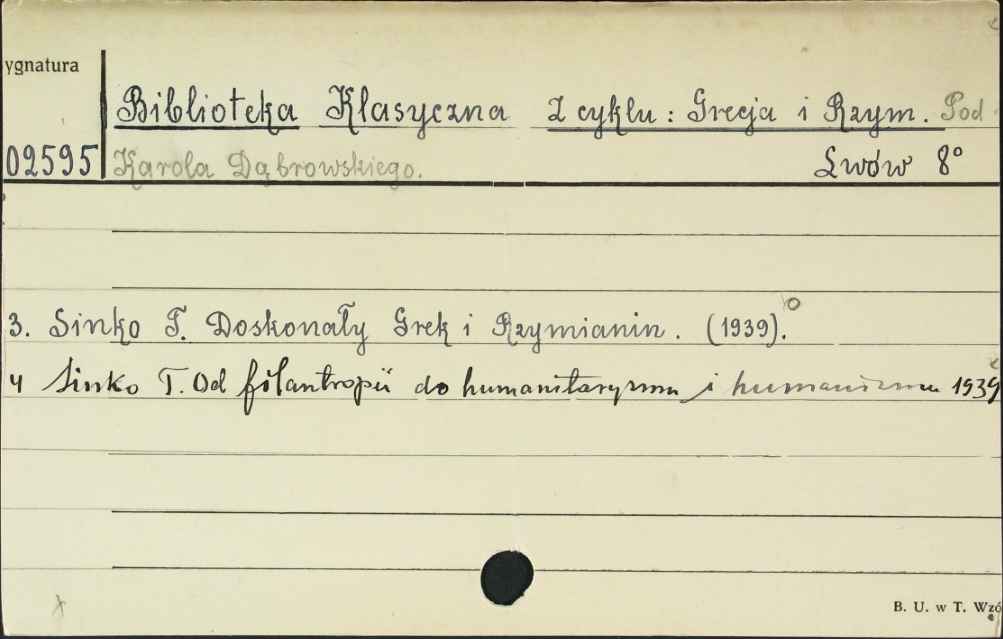 ygnatura
Biblioteka Klasyczna Z cyklu: Grecja i Rzym. Pod
02595 Karola Dąbrowskiego. Lwów 8°
3. Sinko T. Doskonały Grek i Rzymianin. (1939).
4 Sinko T. Od filantropii do humanitaryzmu i humanizmu 1939
B. U. w T. Wzó